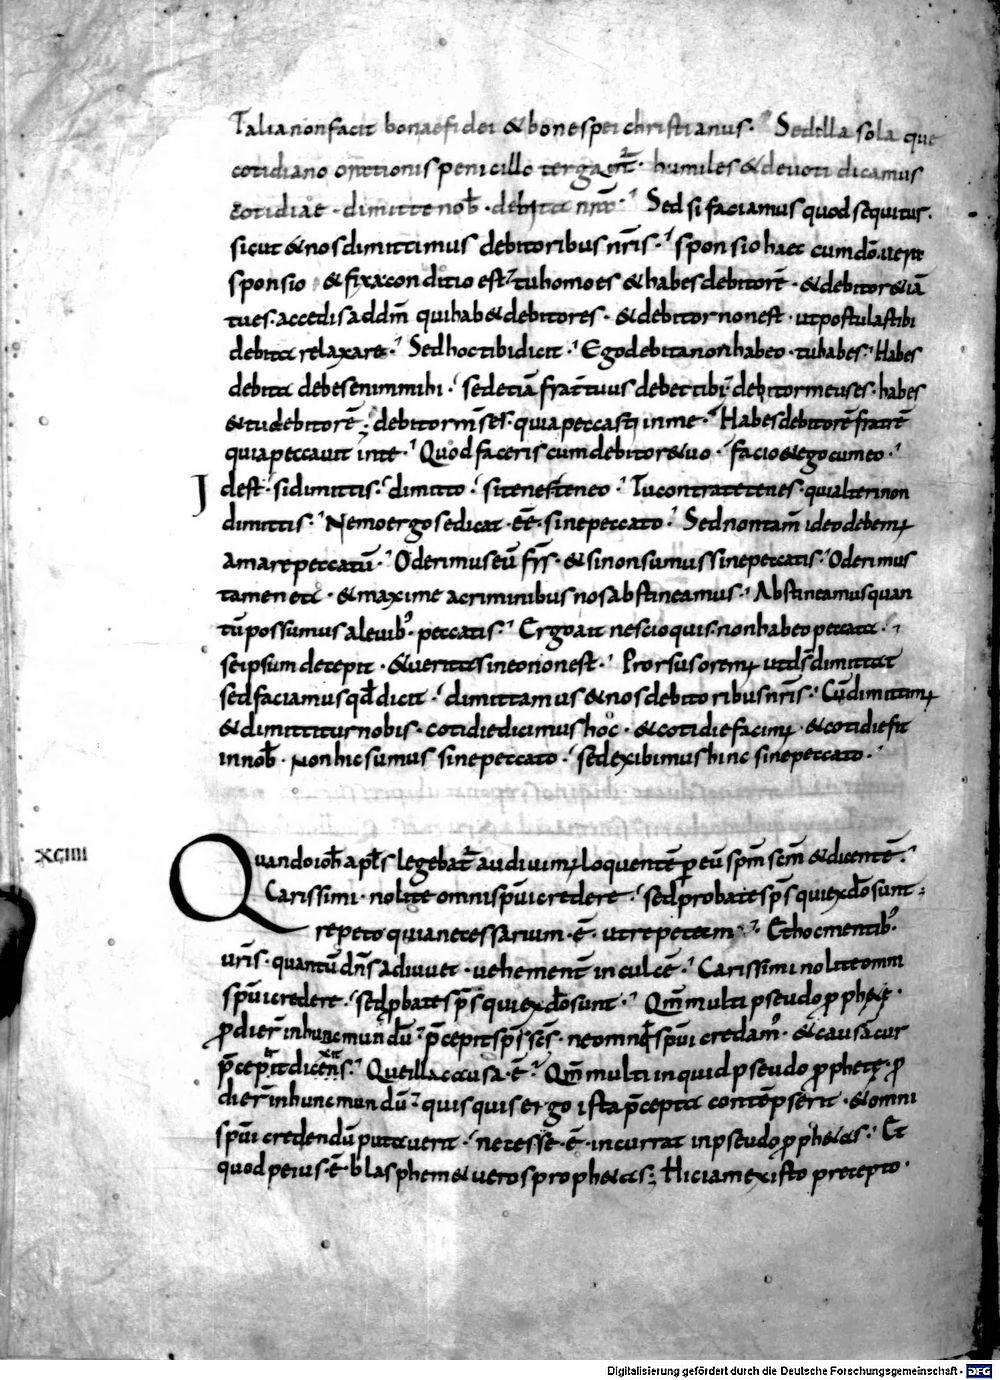 Talia non facit bonae fidei & bone spei christianus. Sed illa sola que
cotidiano orationis penicillo tergant̄. humiles & deuoti dicamus
cotidiae. dimitte nob̄. debita nr̄a. Sed si faciamus quod sequitur.
sicut & nos dimittimus debitoribus nr̄is. sponsio haec cum dō. uera
sponsio & fixa conditio est. tu homo es & habes debitorē. & debitor & iā
tu es. accedis ad dm̄ qui hab& debitores. & debitor non est. ut postulas tibi
debita relaxare. Sed hoc tibi dicit. Ego debita non habeo. tu habes. Habes
debita debes enim mihi. sed etiā frater tuus debet tibi. debitor meus es. habes
& tu debitorē; debitor m̄s es. quia peccasti in me. Habes debitorē fratrē
quia peccauit in te. Quod faceris cum debitore tuo. facio & ego cum eo.
Id est. si dimittis. dimitto. si tenes teneo. Tu contra te tenes. qui alteri non
dimittis. Nemo ergo se dicat. eē. sine peccato. Sed non tam̄ ideo debem;
amare peccatū. Oderimus eū fr̄s. & si non sumus sine peccatis. Oderimus
tamen ea. & maxime a criminibus nos abstineamus. Abstineamus quan
tū possumus a leuib; peccatis. Ergo ait nescio quis. non habeo peccata.
se ipsum decepit. & ueritas in eo non est. Prorsus orem; ut dš dimittat
sed faciamus qd̄ dicit. dimittamus & nos debitoribus nr̄is. Cū dimittim;
& dimittitur nobis. cotidie dicimus hoc. & cotidie facim; & cotidie fit
in nob̄. Non hic sumus sine peccato. sed exibimus hinc sine peccato.
XCIIII
Quando ioh̄ apl̄s legebat̄ audiuim; loquentē p eū spm̄ scm̄ & dicentē.
Carissimi. nolite omni spūi credere. sed probate sps̄ qui ex dō sunt.
repeto quia necessarium. ē. ut repetam. Et hoc mentib;
uris̄. quantū dn̄s adiuuet. uehement̄ inculcē. Carissimi nolite omni
spūi credere. sed pbate sps̄ qui ex dō sunt. Qm̄ multi pseudo pphetę.
pdier̄ in hunc mundū. p̄cepit sps̄ scs̄. ne omni spūi credam; & causā cur
p̄ceperit dicens. Que illa causa. ē. Qm̄ multi inquid pseudo pphetę. p
dier̄ in hunc mundū. quisquis ergo ista p̄cepta contēpserit. & omni
spūi credendū putauerit. necesse. ē. incurrat in pseudo pphetas. Et
quod peius. ē. blasphem& ueros prophetas; Hic iam ex isto precepto.